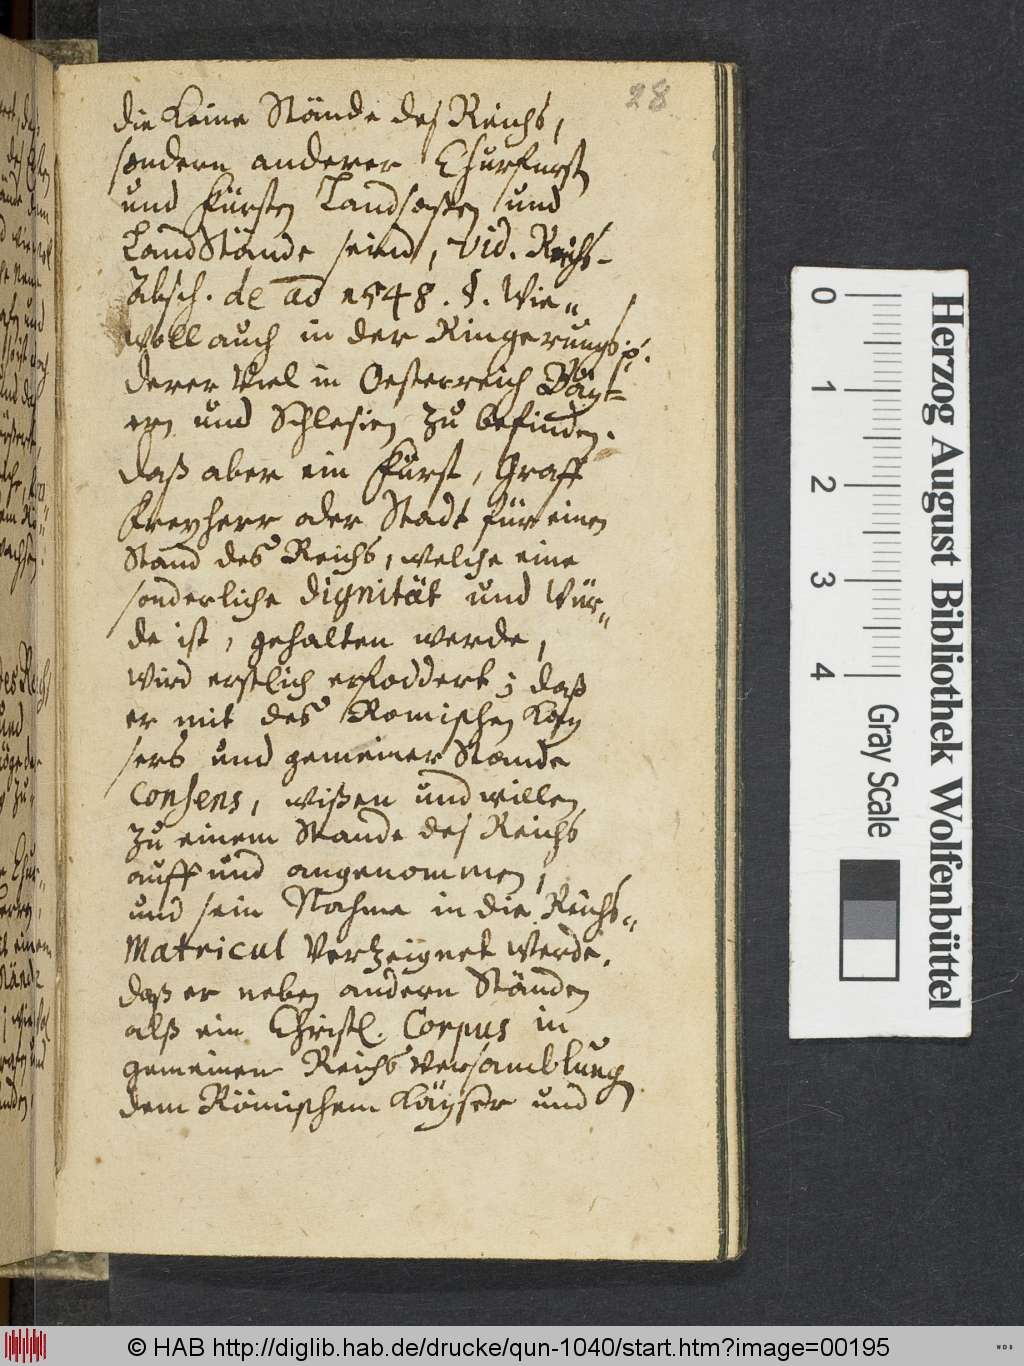 28
die keine Stände des Reichs,
sondern anderer Churfürst
und Fürsten Landsaßen und
LandStände seind, vid. Reichs-
Absch. de ao 1548. §. Wie„
woll auch in der Ringerungs p.
derer Viel in Oesterreich Bäy=
ern und Schlesien zu befinden.
daß aber ein Fürst, Graff
Freyherr oder Stadt für einen
Stand des Reichs, welche eine
sonderliche dignität und Wür„
de ist, gehalten werde,
wird erstlich erfoddert; daß
er mit des Romischen Kay
sers und gemeiner Stande
Consens, wißen und willen
zu einem Stande des Reichs
auff und angenommen,
und sein Nahme in die Reichs„
Matricul Vertzeignet werde.
daß er neben andern Ständen
alß ein Christl. Corpus in
gemeinen Reichs Versamblung
dem Römischem Käyser und
0 1 2 3 4
Gray Scale
Herzog August Bibliothek Wolfenbüttel
© HAB http://diglib.hab.de/drucke/qun-1040/start.htm?image=00195